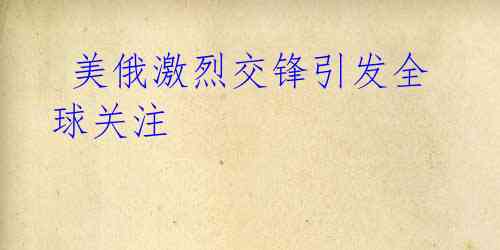 美俄激烈交锋引发全
球关注